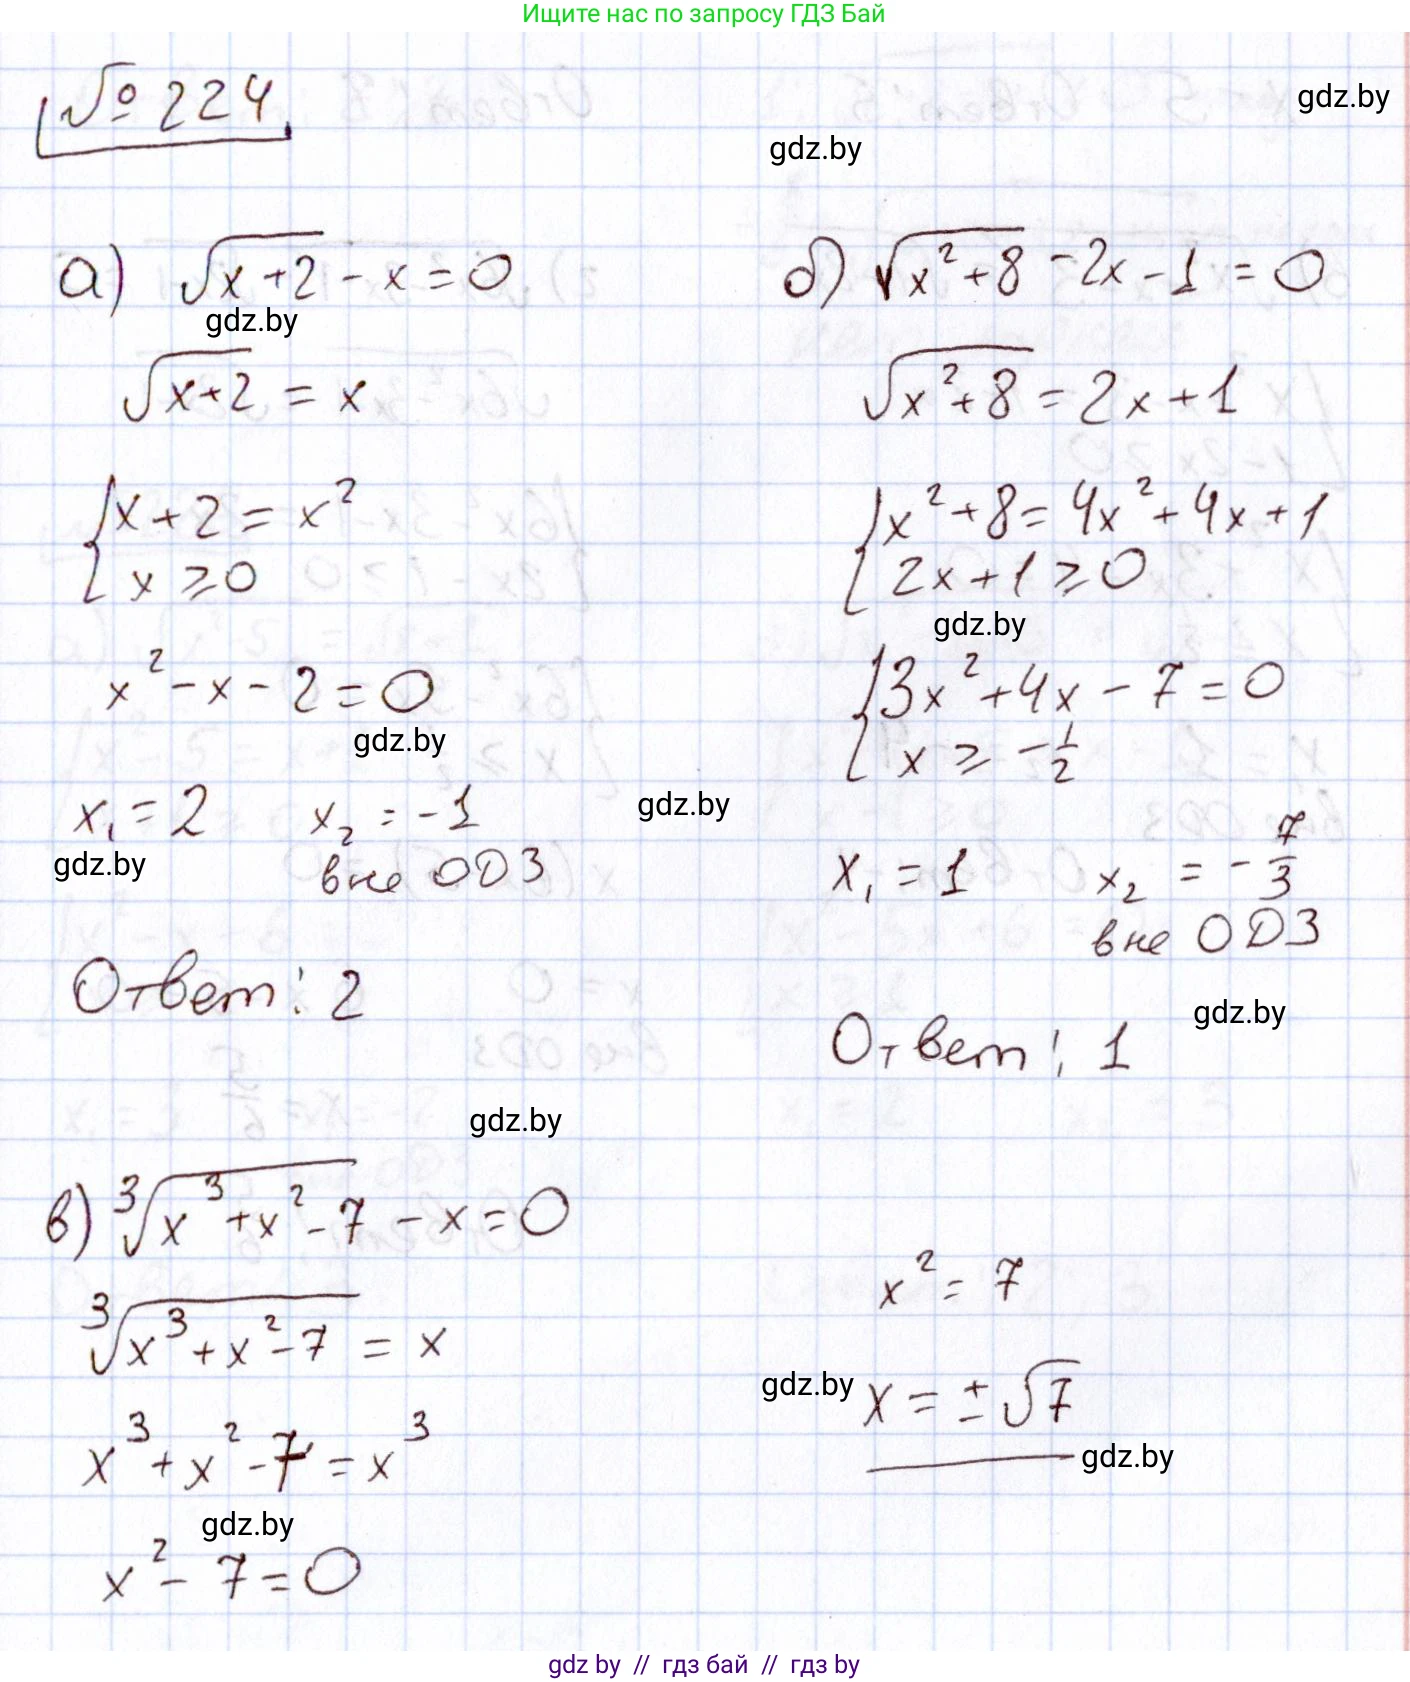 Ищите нас по запросу ГДЗ Бай
№ 224
gdz.by
gdz.by
а) √(x+2) - x = 0
gdz.by
√(x+2) = x
{ x + 2 = x²
x ≥ 0
x² - x - 2 = 0
gdz.by
x₁ = 2    x₂ = -1
gdz.by
вне ОДЗ
Ответ: 2
б) √(x²+8) - 2x - 1 = 0
√(x²+8) = 2x + 1
{ x² + 8 = 4x² + 4x + 1
2x + 1 ≥ 0
gdz.by
{ 3x² + 4x - 7 = 0
x ≥ -1/2
gdz.by
x₁ = 1    x₂ = -7/3
вне ОДЗ
gdz.by
Ответ: 1
gdz.by
в) ³√(x³+x²-7) - x = 0
³√(x³+x²-7) = x
x³ + x² - 7 = x³
gdz.by
x² - 7 = 0
x² = 7
gdz.by
x = ±√7
gdz.by
gdz by // гдз бай // гдз by